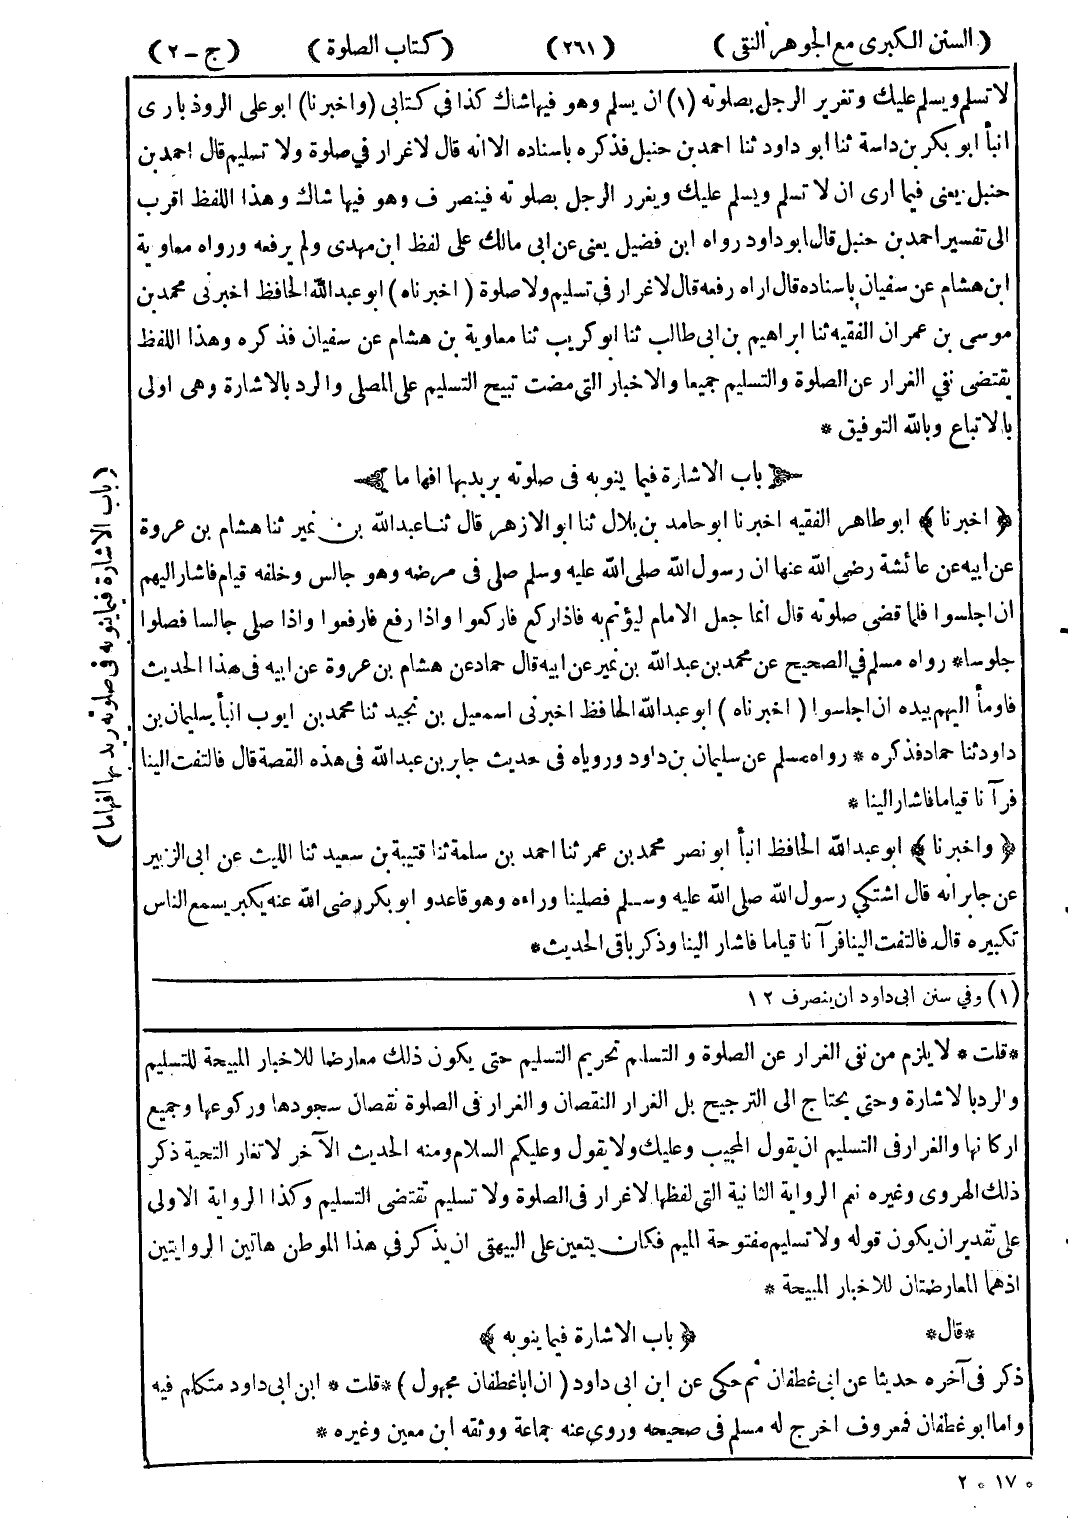 (السنن الكبرى مع الجوهر النقى) (٢٦١) (كتاب الصلوة) (ج - ٢)
لا تسلم ويسلم عليك وتغرير الرجل بصلوته (١) ان يسلم وهو فيها شاك كذا في كتابى (واخبرنا) ابو على الروذبارى
انبأ ابو بكر بن داسة ثنا ابو داود ثنا احمد بن حنبل فذكره باسناده الا انه قال لا غرار في صلوة ولا تسليم قال احمد بن
حنبل يعنى فيما ارى ان لا تسلم ويسلم عليك ويغرر الرجل بصلوته فينصرف وهو فيها شاك وهذا اللفظ اقرب
الى تفسير احمد بن حنبل قال ابو داود رواه ابن فضيل يعنى عن ابى مالك على لفظ ابن مهدى ولم يرفعه ورواه معاوية
ابن هشام عن سفيان باسناده قال اراه رفعه قال لا غرار في تسليم ولا صلوة (اخبرناه) ابو عبدالله الحافظ اخبرنى محمد بن
موسى بن عمران الفقيه ثنا ابراهيم بن ابى طالب ثنا ابو كريب ثنا معاوية بن هشام عن سفيان فذكره وهذا اللفظ
يقتضى نفي الغرار عن الصلوة والتسليم جميعا والاخبار التي مضت تبيح التسليم على المصلى والرد بالاشارة وهى اولى
بالاتباع وبالله التوفيق *
باب الاشارة فيما ينوبه فى صلوته يريد بها افهاما
﴿اخبرنا﴾ ابو طاهر الفقيه اخبرنا ابو حامد بن بلال ثنا ابو الازهر قال ثنا عبدالله بن نمير ثنا هشام بن عروة
عن ابيه عن عائشة رضى الله عنها ان رسول الله صلى الله عليه وسلم صلى فى مرضه وهو جالس وخلفه قيام فاشار اليهم
ان اجلسوا فلما قضى صلوته قال انما جعل الامام ليؤتم به فاذا ركع فاركعوا واذا رفع فارفعوا واذا صلى جالسا فصلوا
جلوسا* رواه مسلم في الصحيح عن محمد بن عبدالله بن نمير عن ابيه قال حماد عن هشام بن عروة عن ابيه فى هذا الحديث
فاومأ اليهم بيده ان اجلسوا (اخبرناه) ابو عبدالله الحافظ اخبرنى اسمعيل بن نجيد ثنا محمد بن ايوب انبأ سليمان بن
داود ثنا حماد فذكره * رواه مسلم عن سليمان بن داود وروياه فى حديث جابر بن عبدالله فى هذه القصة قال فالتفت الينا
فرآنا قياما فاشار الينا *
﴿واخبرنا﴾ ابو عبدالله الحافظ انبأ ابو نصر محمد بن عمر ثنا احمد بن سلمة ثنا قتيبة بن سعيد ثنا الليث عن ابى الزبير
عن جابر انه قال اشتكى رسول الله صلى الله عليه وسلم فصلينا وراءه وهو قاعد وابو بكر رضى الله عنه يكبر يسمع الناس
تكبيره قال فالتفت الينا فرآنا قياما فاشار الينا وذكر باقى الحديث*
(باب الاشارة فيما ينوبه فى صلوته يريد بها افهاما)
(١) وفي سنن ابى داود ان ينصرف ١٢
*قلت* لا يلزم من نفى الغرار عن الصلوة والتسليم تحريم التسليم حتى يكون ذلك معارضا للاخبار المبيحة للتسليم
والرد بالاشارة وحتى يحتاج الى الترجيح بل الغرار النقصان والغرار فى الصلوة نقصان سجودها وركوعها وجميع
اركانها والغرار فى التسليم ان يقول المجيب وعليك ولا يقول وعليكم السلام ومنه الحديث الآخر لا تغار التحية ذكر
ذلك الهروى وغيره نعم الرواية الثانية التي لفظها لا غرار فى الصلوة ولا تسليم تقتضى التسليم وكذا الرواية الاولى
على تقدير ان يكون قوله ولا تسليم مفتوحة الميم فكان يتعين على البيهقى ان يذكر في هذا الموطن هاتين الروايتين
اذهما المعارضتان للاخبار المبيحة *
*قال* ﴿باب الاشارة فيما ينوبه﴾
ذكر فى آخره حديثا عن ابى غطفان ثم حكى عن ابن ابى داود (ان ابا غطفان مجهول) *قلت* ابن ابى داود متكلم فيه
واما ابو غطفان فمعروف اخرج له مسلم فى صحيحه وروى عنه جماعة ووثقه ابن معين وغيره *
٢ * ١٧ *